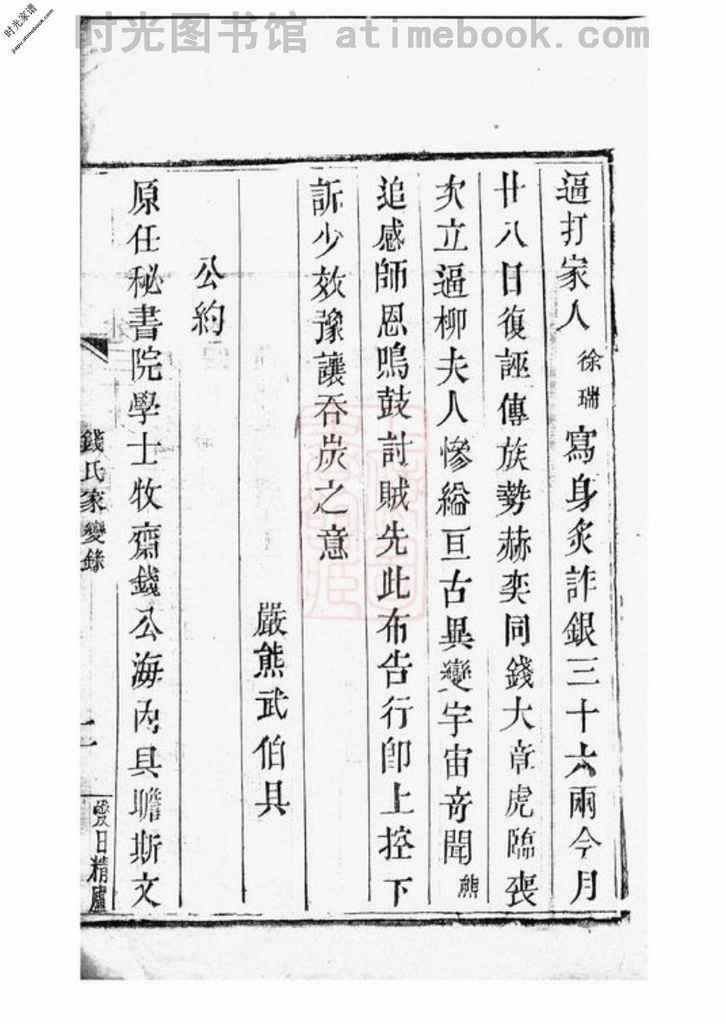 时光图书馆 atimebook.com
时光家谱
jiapu.atimebook.com
逼打家人徐瑞寫身炙詐銀三十六兩今月
廿八日復誣傳族勢赫奕同錢大章虎臨喪
次立逼柳夫人慘縊亘古異變宇宙奇聞熊
追感師恩鳴鼓討賊先此布告行卽上控下
訴少效豫讓吞炭之意
嚴熊武伯具
公約
原任秘書院學士牧齋錢公海內具瞻斯文
錢氏家變錄
二
虞山精廬